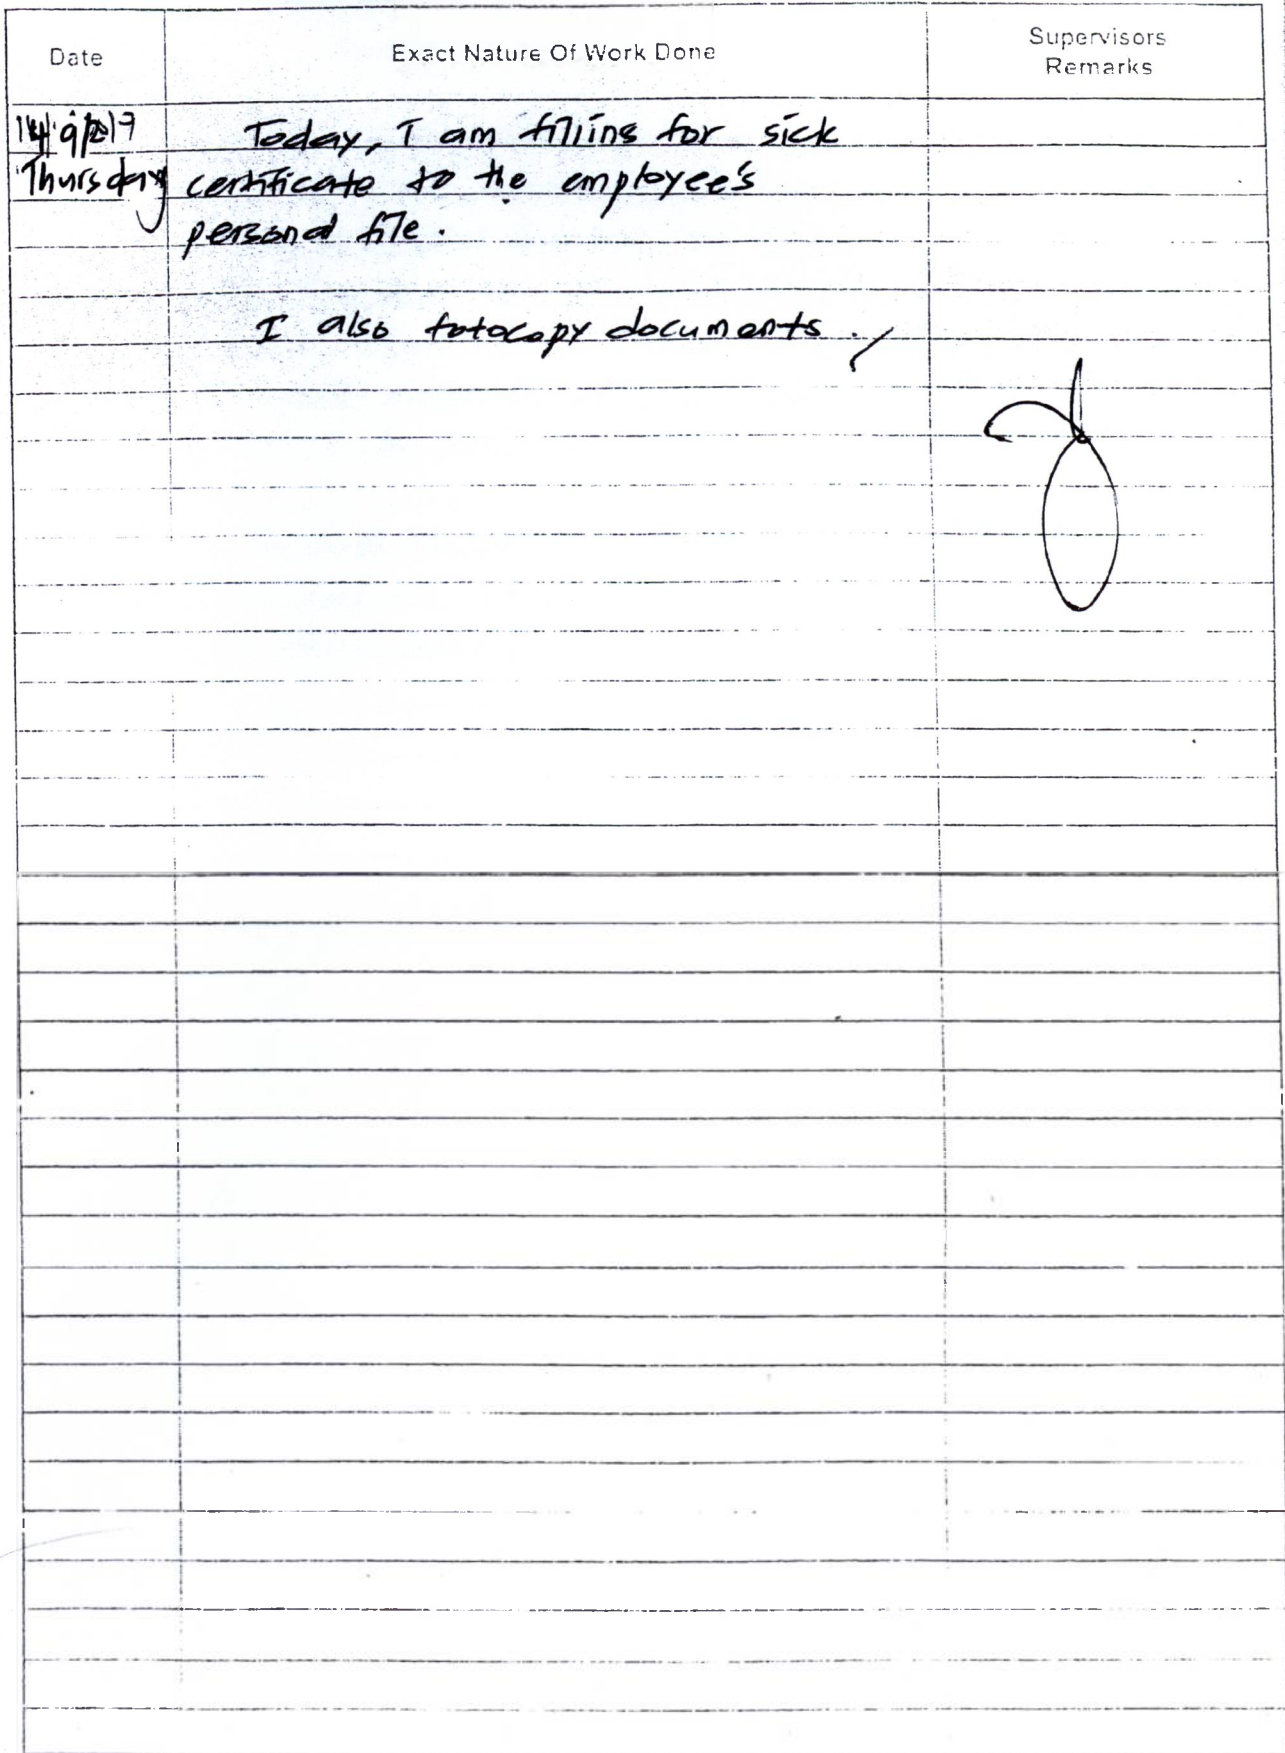 Date
Exact Nature Of Work Done
Supervisors
Remarks
14/9/2017
Today, I am filiing for sick
Thursday
certificate to the employee's
personal file.
I also fotocopy documents.